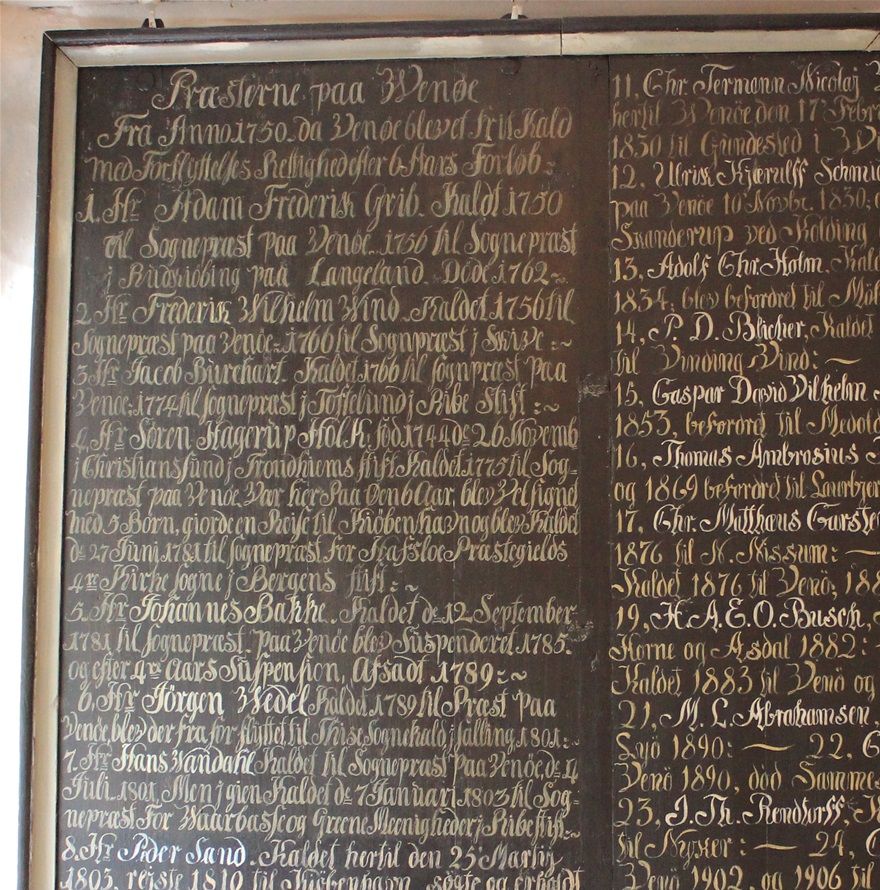 Præsterne paa Wenøe
Fra Anno 1750. da Venøe blev et frit Kald
med Forflyttelses Rettighed efter 6 Aars Forløb:
1. Hr Adam Frederik Grib. Kaldt 1750
til Sognepræst paa Venøe. 1756 til Sognepræst
j Rudkiøbing paa Langeland. Døde 1762 ~
2. Hr Frederik Wilhelm Wind. Kaldet 1756 til
Sognepræst paa Venøe. 1766 til Sognpræst j Skive :~
3. Hr Jacob Burchart. Kaldet 1766 til sognpræst paa
Venøe; 1774 til sognepræst j Toftelund j Ribe Stift :~
4. Hr Sören Hagerup Holk, föd 1744 d: 26 Novemb
j Christiansfund j Trondhiems stift Kaldet 1775 til Sog-
nepræst paa Venøe. Var her Paa den 6 Aar, blev Velsignet
med 5 Børn, giorde en Reise til Kiöbenhavn og blev Kaldet
d: 27 Junj 1781 til sognepræst for Hafsloe Præstegields
4re Kirke sogne j Bergens stift :~
5. Hr Johannes Bakke. Kaldet d: 12 September
1781 til sognepræst. paa Venøe blev Suspenderet 1785.
og efter 4re Aars Suspension, Afsadt 1789 :~
6. Hr Jörgen Wedel Kaldet 1789 til Præst paa
Venøe, blev der fra for flyttet til Thise Sognekald j salling 1801 :~
7. Hr Hans Vandahl Kaldet til Sognepræst paa Venøe, d: 4
Juli 1801, Men j gien Kaldet d: 7 Januari 1803 til Sog-
nepræst For Waarbasse og Greene Meenigheder j Ribe stift :~
8. Hr Peder Sand. Kaldet hertil den 25 Martij
1803, reiste 1810 til Kiöbenhavn, søgte og erholdt
11, Chr Termann Nicolaj
hertil Wenöe den 17 Febr
1830 til Gundested i
12, Ulrik Kjærulff Schmid
paa Venöe 10 Novbr. 1830,
Skanderup ved Kolding
13, Adolf Chr. Holm. Kald
1834, blev befordret til
14, P. D. Blicher, Kaldet
til Vinding Vind: —
15, Caspar David Vilhelm
1853, befordret til
16, Thomas Ambrosius
og 1869 befordret til
17, Chr. Matthæus Carste
1876 til N. Nissum: —
Kaldet 1876 til Venö, 188
19, H. A. E. O. Busch,
Horne og Asdal 1882: —
Kaldet 1883 til Venö og
21, M. L. Abrahamsen,
Lyö 1890: — 22,
Venö 1890, död Samme
23, J. Th. Rendtorff,
til Nykær: — 24,
Venö 1902, og 1906 til